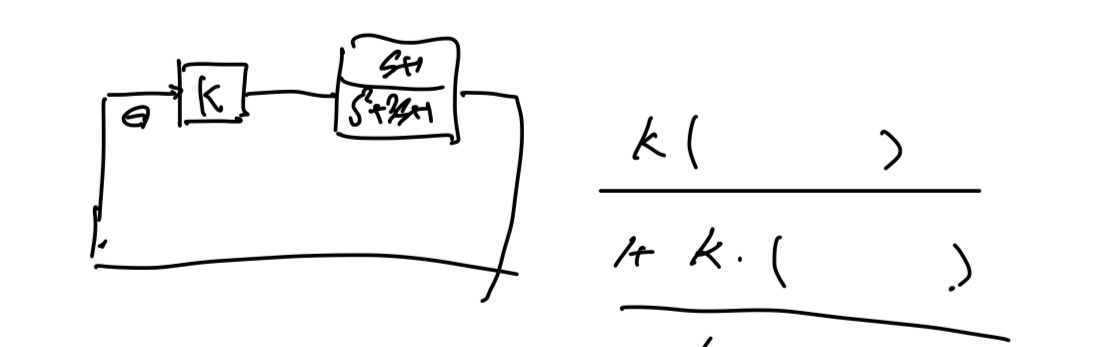 s+1
K
s²+2s+1
⊖
k ( )
1+ k · ( )